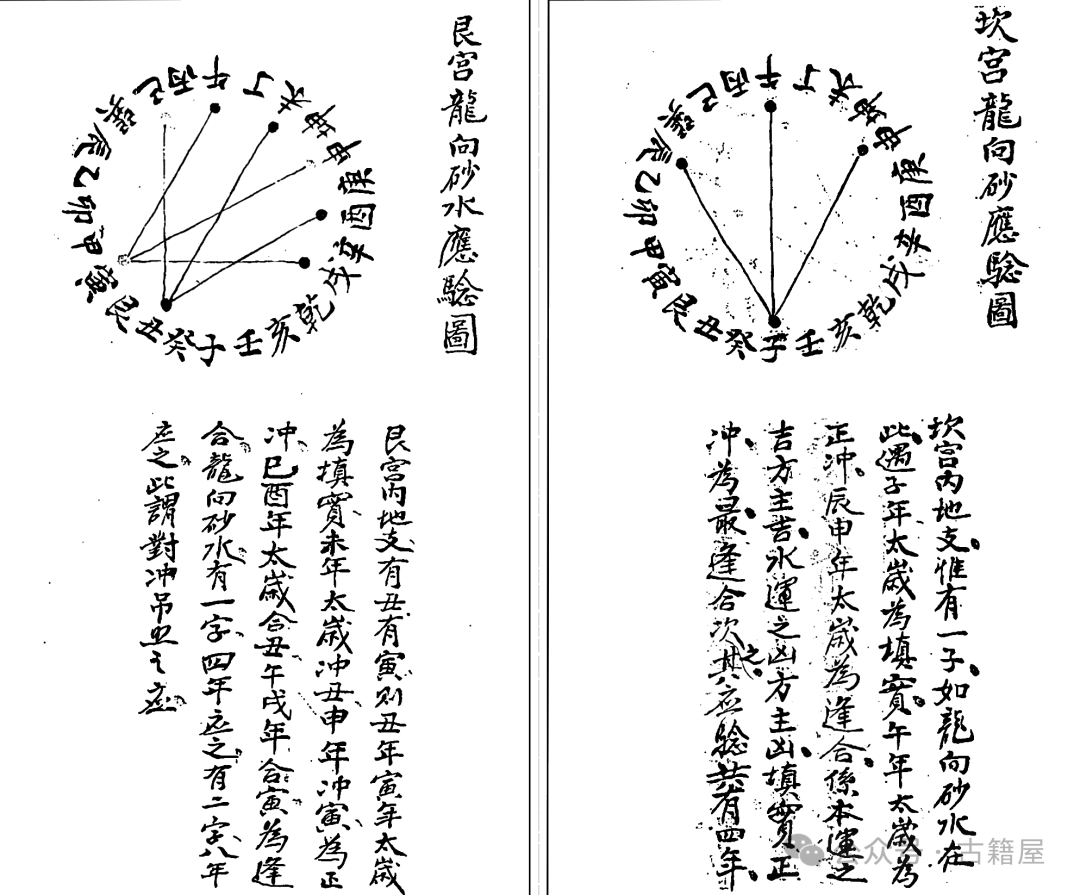 坎宮龍向砂應騐圖
午丁未坤申庚酉辛戌乾亥壬子癸丑艮寅甲卯乙辰巽巳丙
坎宫内地支惟有一子如龍向砂水在
此遇子年太歲為填實午年太歲為
正冲辰申年太歲為逢合係本運之
吉方主吉水運之凶方主凶填實正
冲為最逢合次之其应騐共有四年
艮宮龍向砂水應騐圖
午丁未坤申庚酉辛戌乾亥壬子癸丑艮寅甲卯乙辰巽巳丙
艮宫内地支有丑有寅则丑年寅年太歲
為填實未年太歲冲丑申年冲寅為正
冲巳酉年太歲合丑午戌年合寅為逢
合龍向砂水有一字四年应之有二字八年
应之此謂對冲吊照之应
公众号·古籍屋